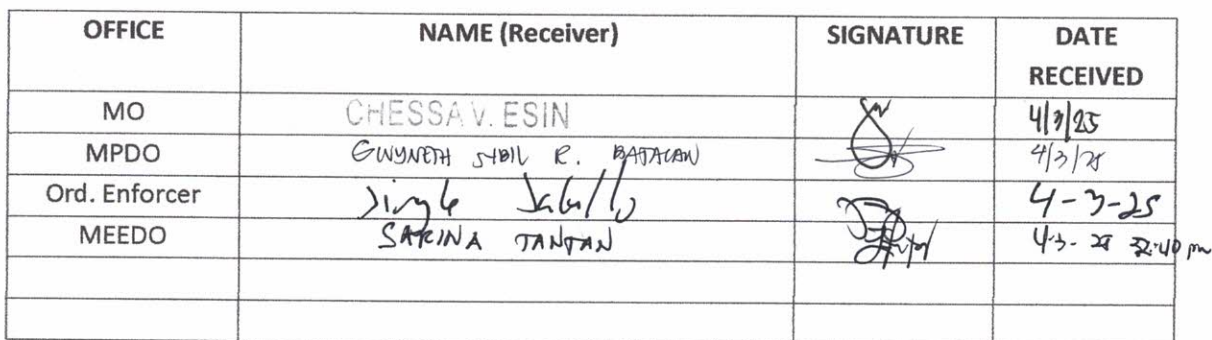 OFFICE NAME (Receiver) SIGNATURE DATE RECEIVED
MO CHESSA V. ESIN 4/3/25
MPDO GWYNETH SYBIL R. BATACAN 4/3/25
Ord. Enforcer 4-3-25
MEEDO SARINA TANTAN 4-3-25 :40 pm